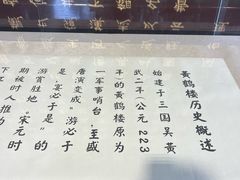 黄鹤楼历史概述
始建于三国吴黄
武二年(公元223
年)的黄鹤楼原为
一军事哨台,至盛
唐演变成“游必于
是,宴必于是”的
游赏胜地。宋元时
期被时人推为
下